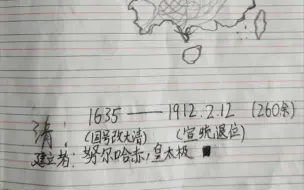 清: 1635 —— 1912.2.12 (260余)
(国号改大清) (宣统退位)
建立者: 努尔哈赤, 皇太极